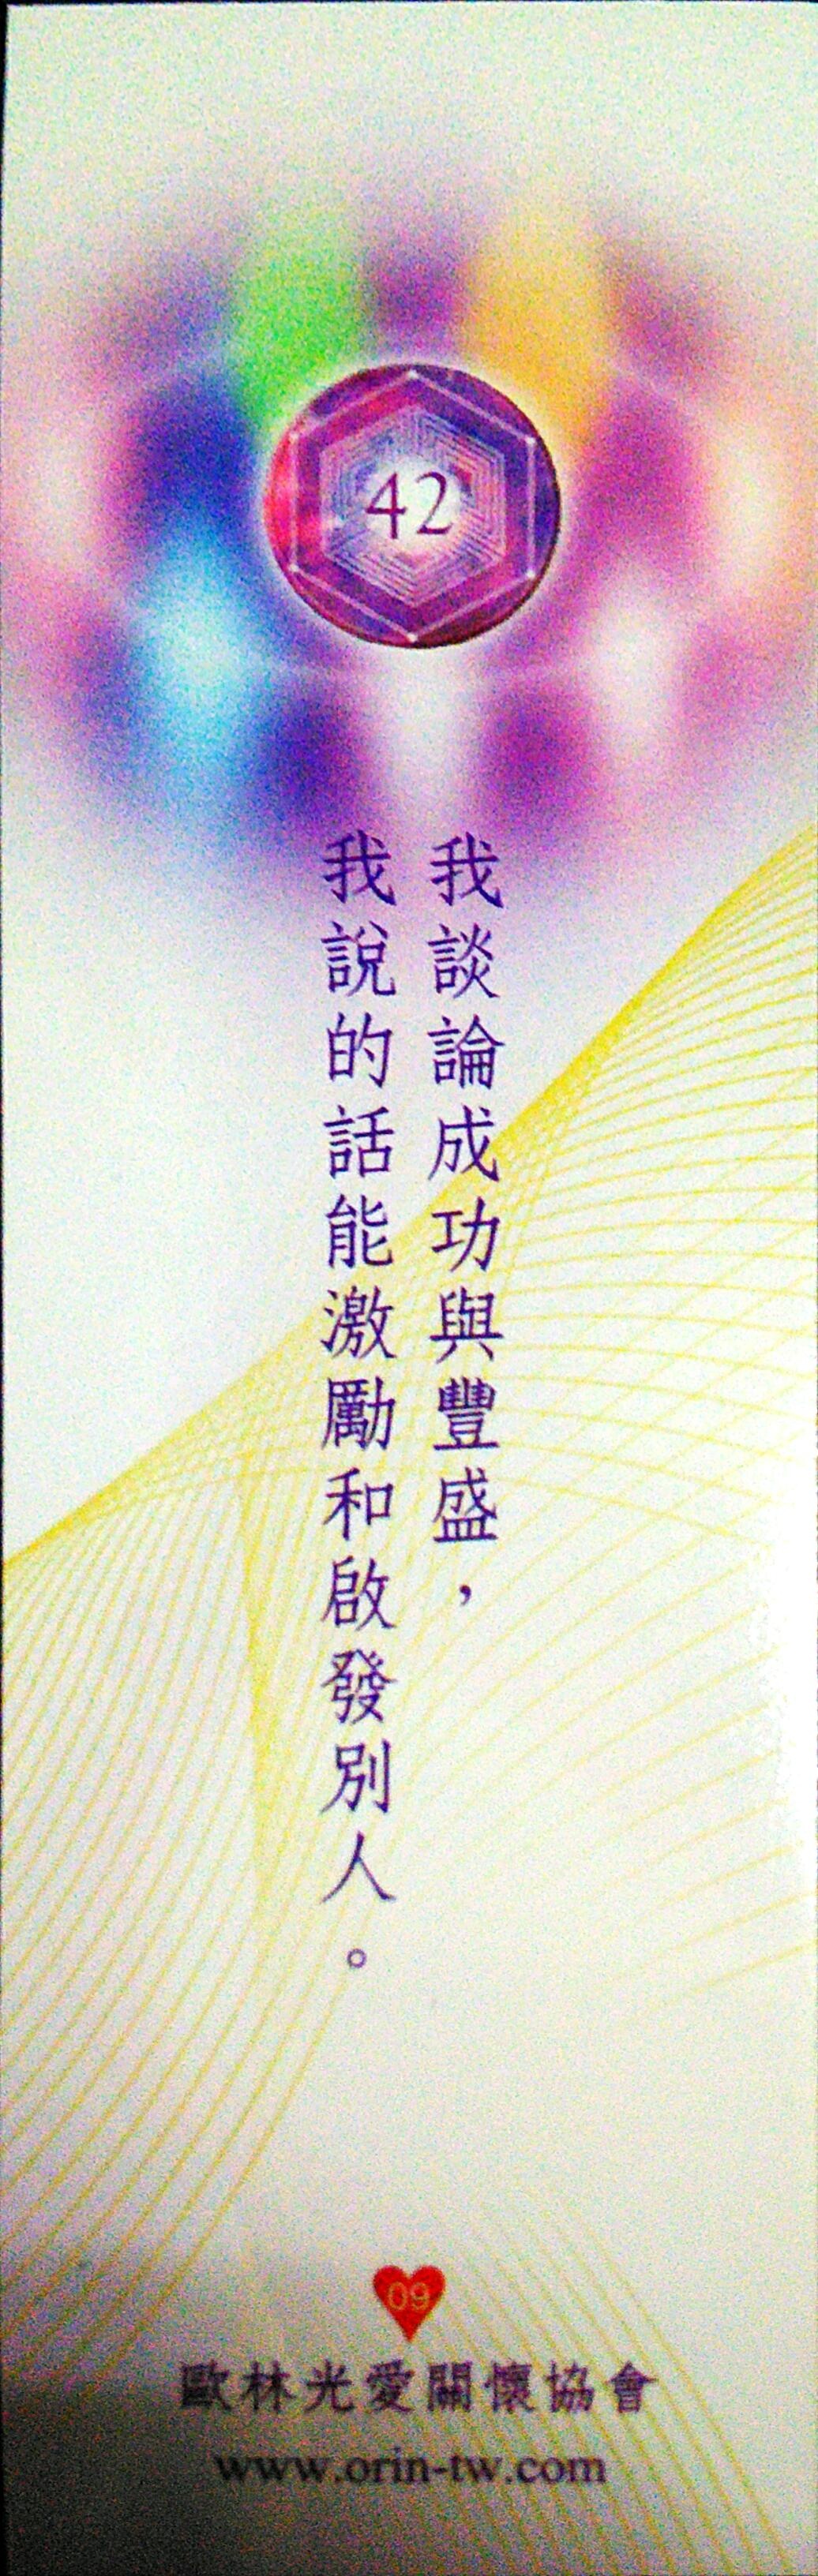 42
我談論成功與豐盛，
我說的話能激勵和啟發別人。
09
歐林光愛關懷協會
www.orin-tw.com